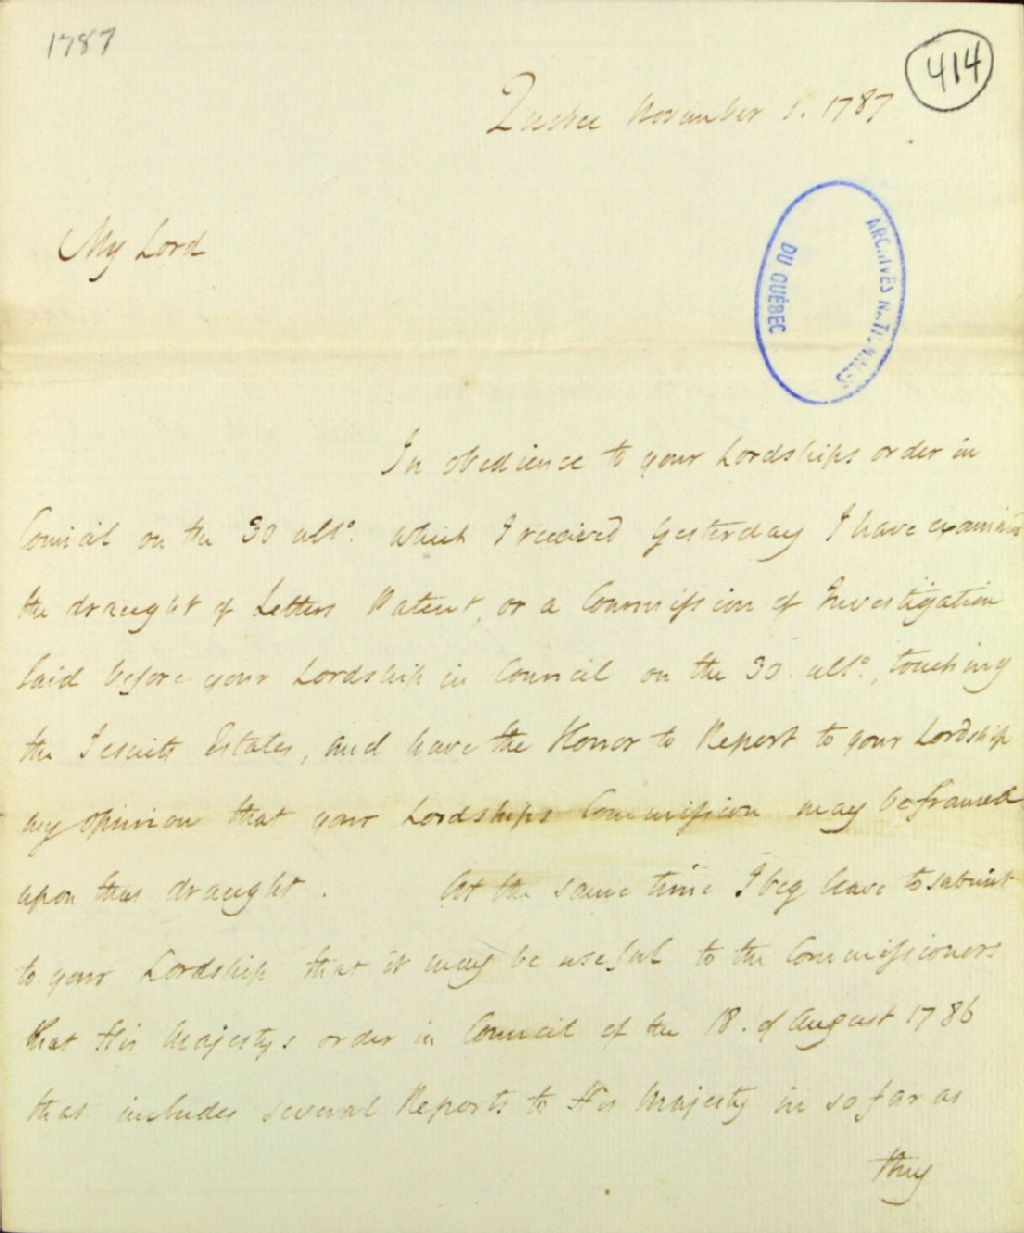 1787
414
Quebec November 1. 1787
My Lord
ARCHIVES NATIONALES
DU QUÉBEC
In obedience to your Lordships order in
Council on the 30 ulto. which I received yesterday I have examined
the draught of Letters Patent, or a Commission of Investigation
laid before your Lordship in Council on the 30. ulto., touching
the Jesuits Estates, and have the Honor to Report to your Lordship
my opinion that your Lordships Commission may be framed
upon that draught. At the same time I beg leave to submit
to your Lordship that it may be useful to the Commissioners
that His Majestys order in Council of the 18. of August 1786
that includes several Reports to His Majesty in so far as
they